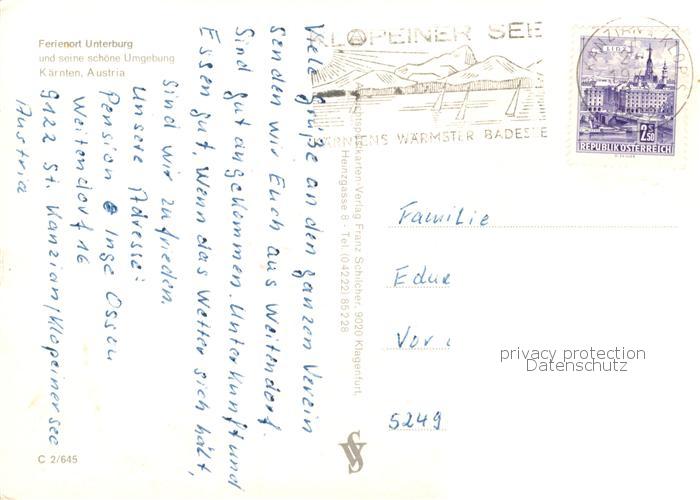 Ferienort Unterburg
und seine schöne Umgebung
Kärnten, Austria
Viele Grüße an den ganzen Verein
senden wir Euch aus Weitendorf.
Sind gut angekommen. Unterkunft und
Essen gut, Wenn das Wetter sich hält,
sind wir zufrieden.
Unsere Adresse:
Pension Inge Ossen
Weitendorf 16
9122 St. Kanzian/Klopeinersee
Austria
C 2/645
Franz Schilcher, 9020 Klagenfurt,
Heinzgasse 8 · Tel. (04222) 85228
KLOPEINER SEE
KÄRNTENS WÄRMSTER BADESEE
LINZ
2.50
REPUBLIK ÖSTERREICH
Familie
Edu
Vor
5249
privacy protection
Datenschutz